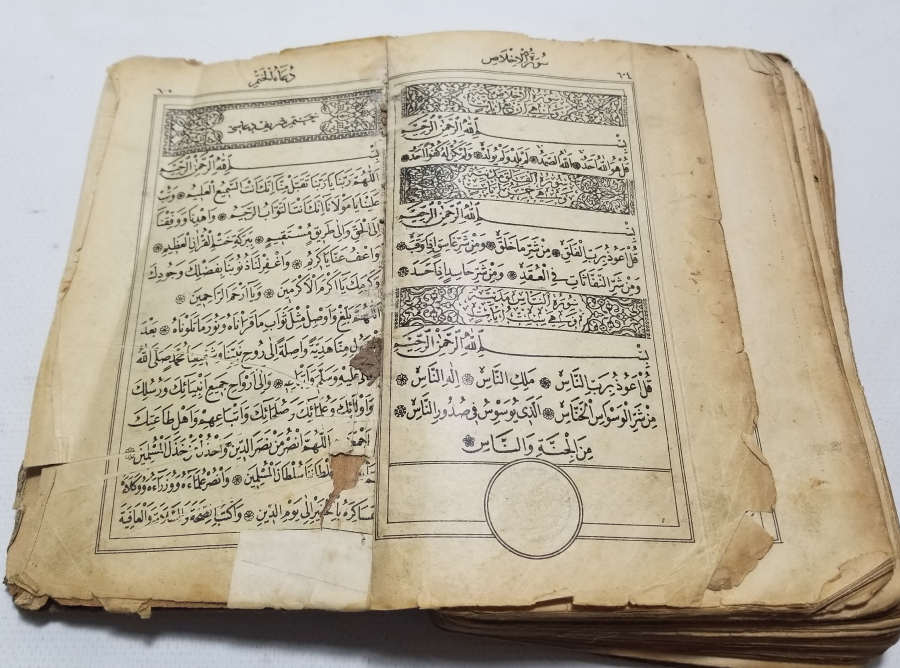 سورة الاخلاص
بسم الله الرحمن الرحيم
قل هو الله احد الله الصمد لم يلد ولم يولد ولم يكن له كفوا احد
سورة الفلق
بسم الله الرحمن الرحيم
قل اعوذ برب الفلق من شر ما خلق ومن شر غاسق اذا وقب
ومن شر النفاثات في العقد ومن شر حاسد اذا حسد
سورة الناس مدنية
بسم الله الرحمن الرحيم
قل اعوذ برب الناس ملك الناس اله الناس
من شر الوسواس الخناس الذي يوسوس في صدور الناس
من الجنة والناس
دعاء الختم
ختم شريف دعاسى
بسم الله الرحمن الرحيم
اللهم ربنا يا ربنا تقبل منا انك انت السميع العليم وتب
علينا يا مولانا انك انت التواب الرحيم واهدنا ووفقنا
الى الحق والى طريق مستقيم ببركة ختم القرآن العظيم
واعف عنا يا كريم واغفر لنا ذنوبنا بفضلك وجودك
وكرمك يا اكرم الاكرمين ويا ارحم الراحمين
اللهم بلغ واوصل مثل ثواب ما قرأناه ونور ما تلوناه بعد
القبول منا هدية واصلة الى روح نبينا وشفيعنا محمد صلى الله
عليه وسلم واتباعه والى ارواح جميع انبيائك ورسلك
واوليائك وعلمائك وصلحائك واتباعهم واهل طاعتك
اللهم انصر من نصر الدين واخذل من خذل المسلمين
سلطان المسلمين وانصر علماءه ووزراءه ووكلاءه
وعساكره الى يوم الدين واكتب الصحة والسلامة والعافية